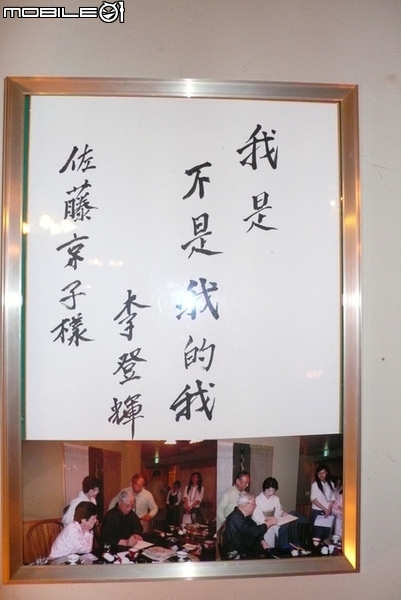 MOBILE01
我是
不是我的我
李登輝
佐藤京子樣